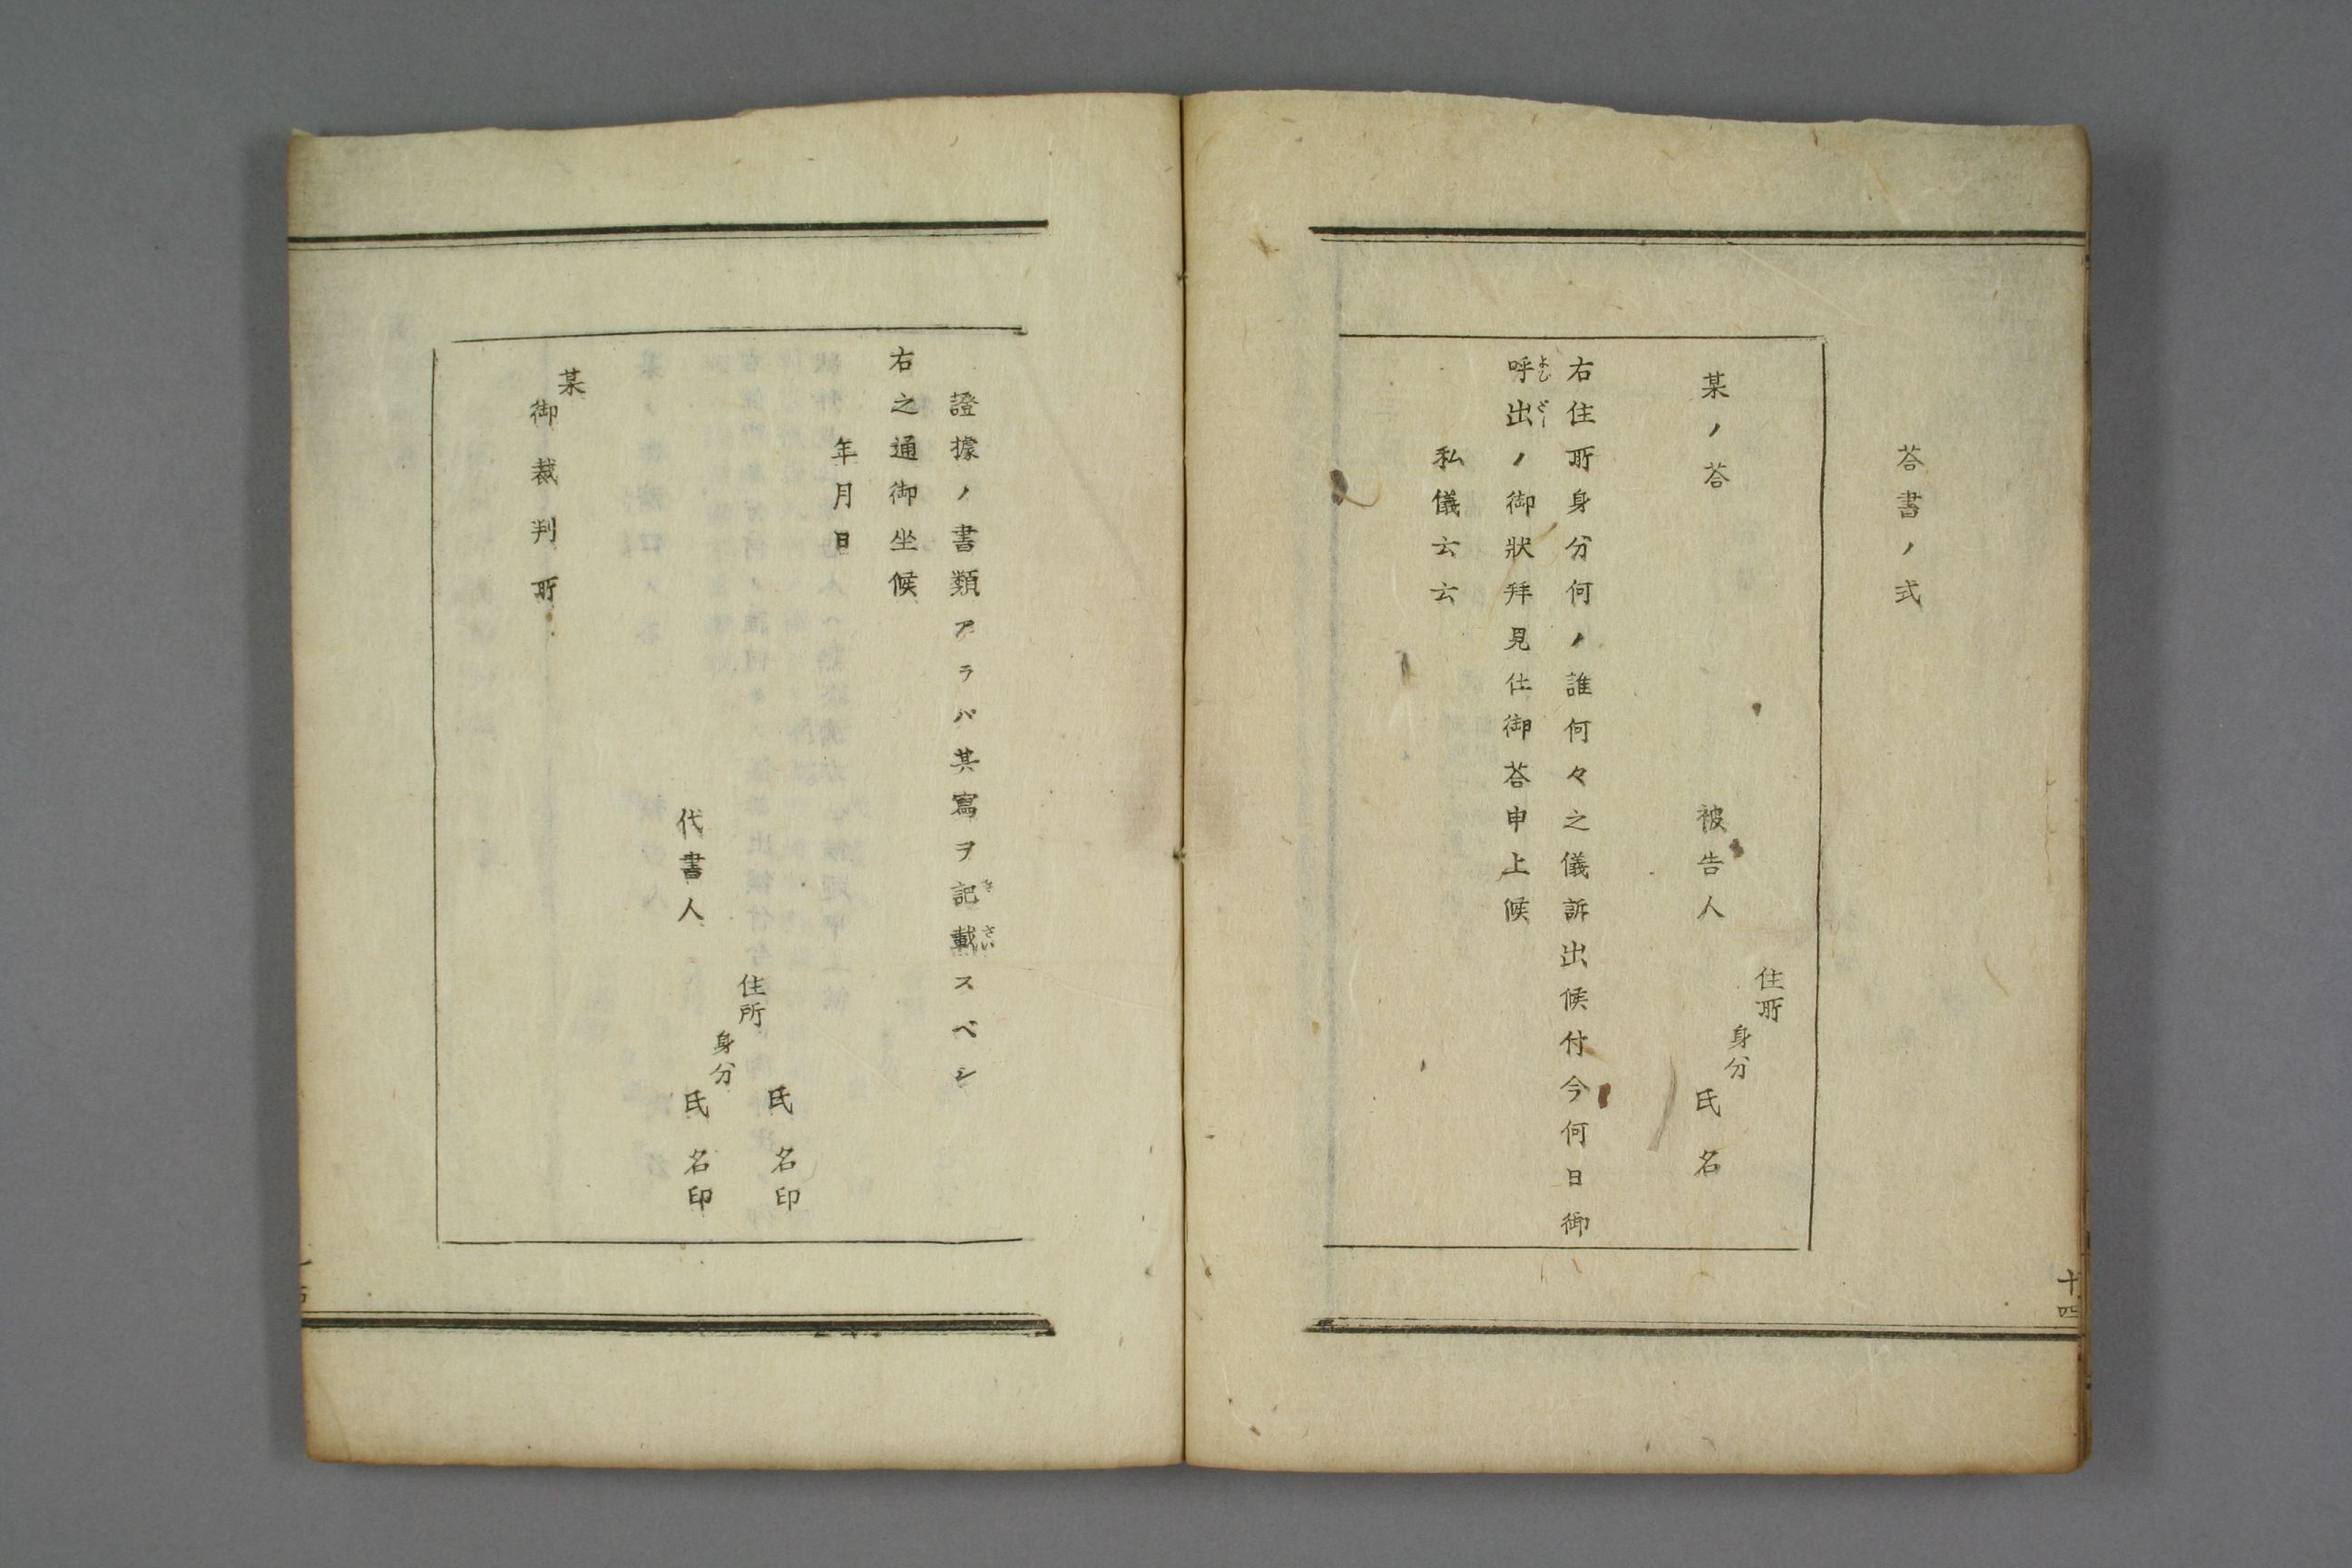 荅書ノ式
某ノ荅
住所
身分
被告人 氏名
右住所身分何ノ誰何々之儀訴出候付今何日御
呼出ノ御狀拜見仕御荅申上候
よび だし
私儀云云
十四
證據ノ書類アラバ其寫ヲ記載スベシ
き さい
右之通御坐候
年月日
氏名印
住所
身分
代書人 氏名印
某
御裁判所